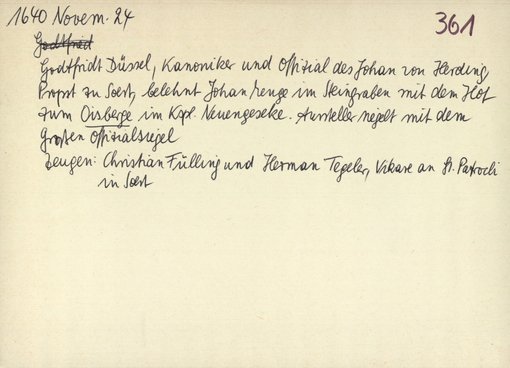 1640 Novem. 24
361
Godtfried
Godtfridt Düssel, Kanoniker und Offizial des Johan von Herding,
Propst zu Soest, belehnt Johan Henge im Steingraben mit dem Hof
zum Oisberge im Kspl. Neuengeseke. Aussteller siegelt mit dem
Großen Offizialsiegel
Zeugen: Christian Fülling und Herman Tegeler, Vikare an St. Patrocli
in Soest